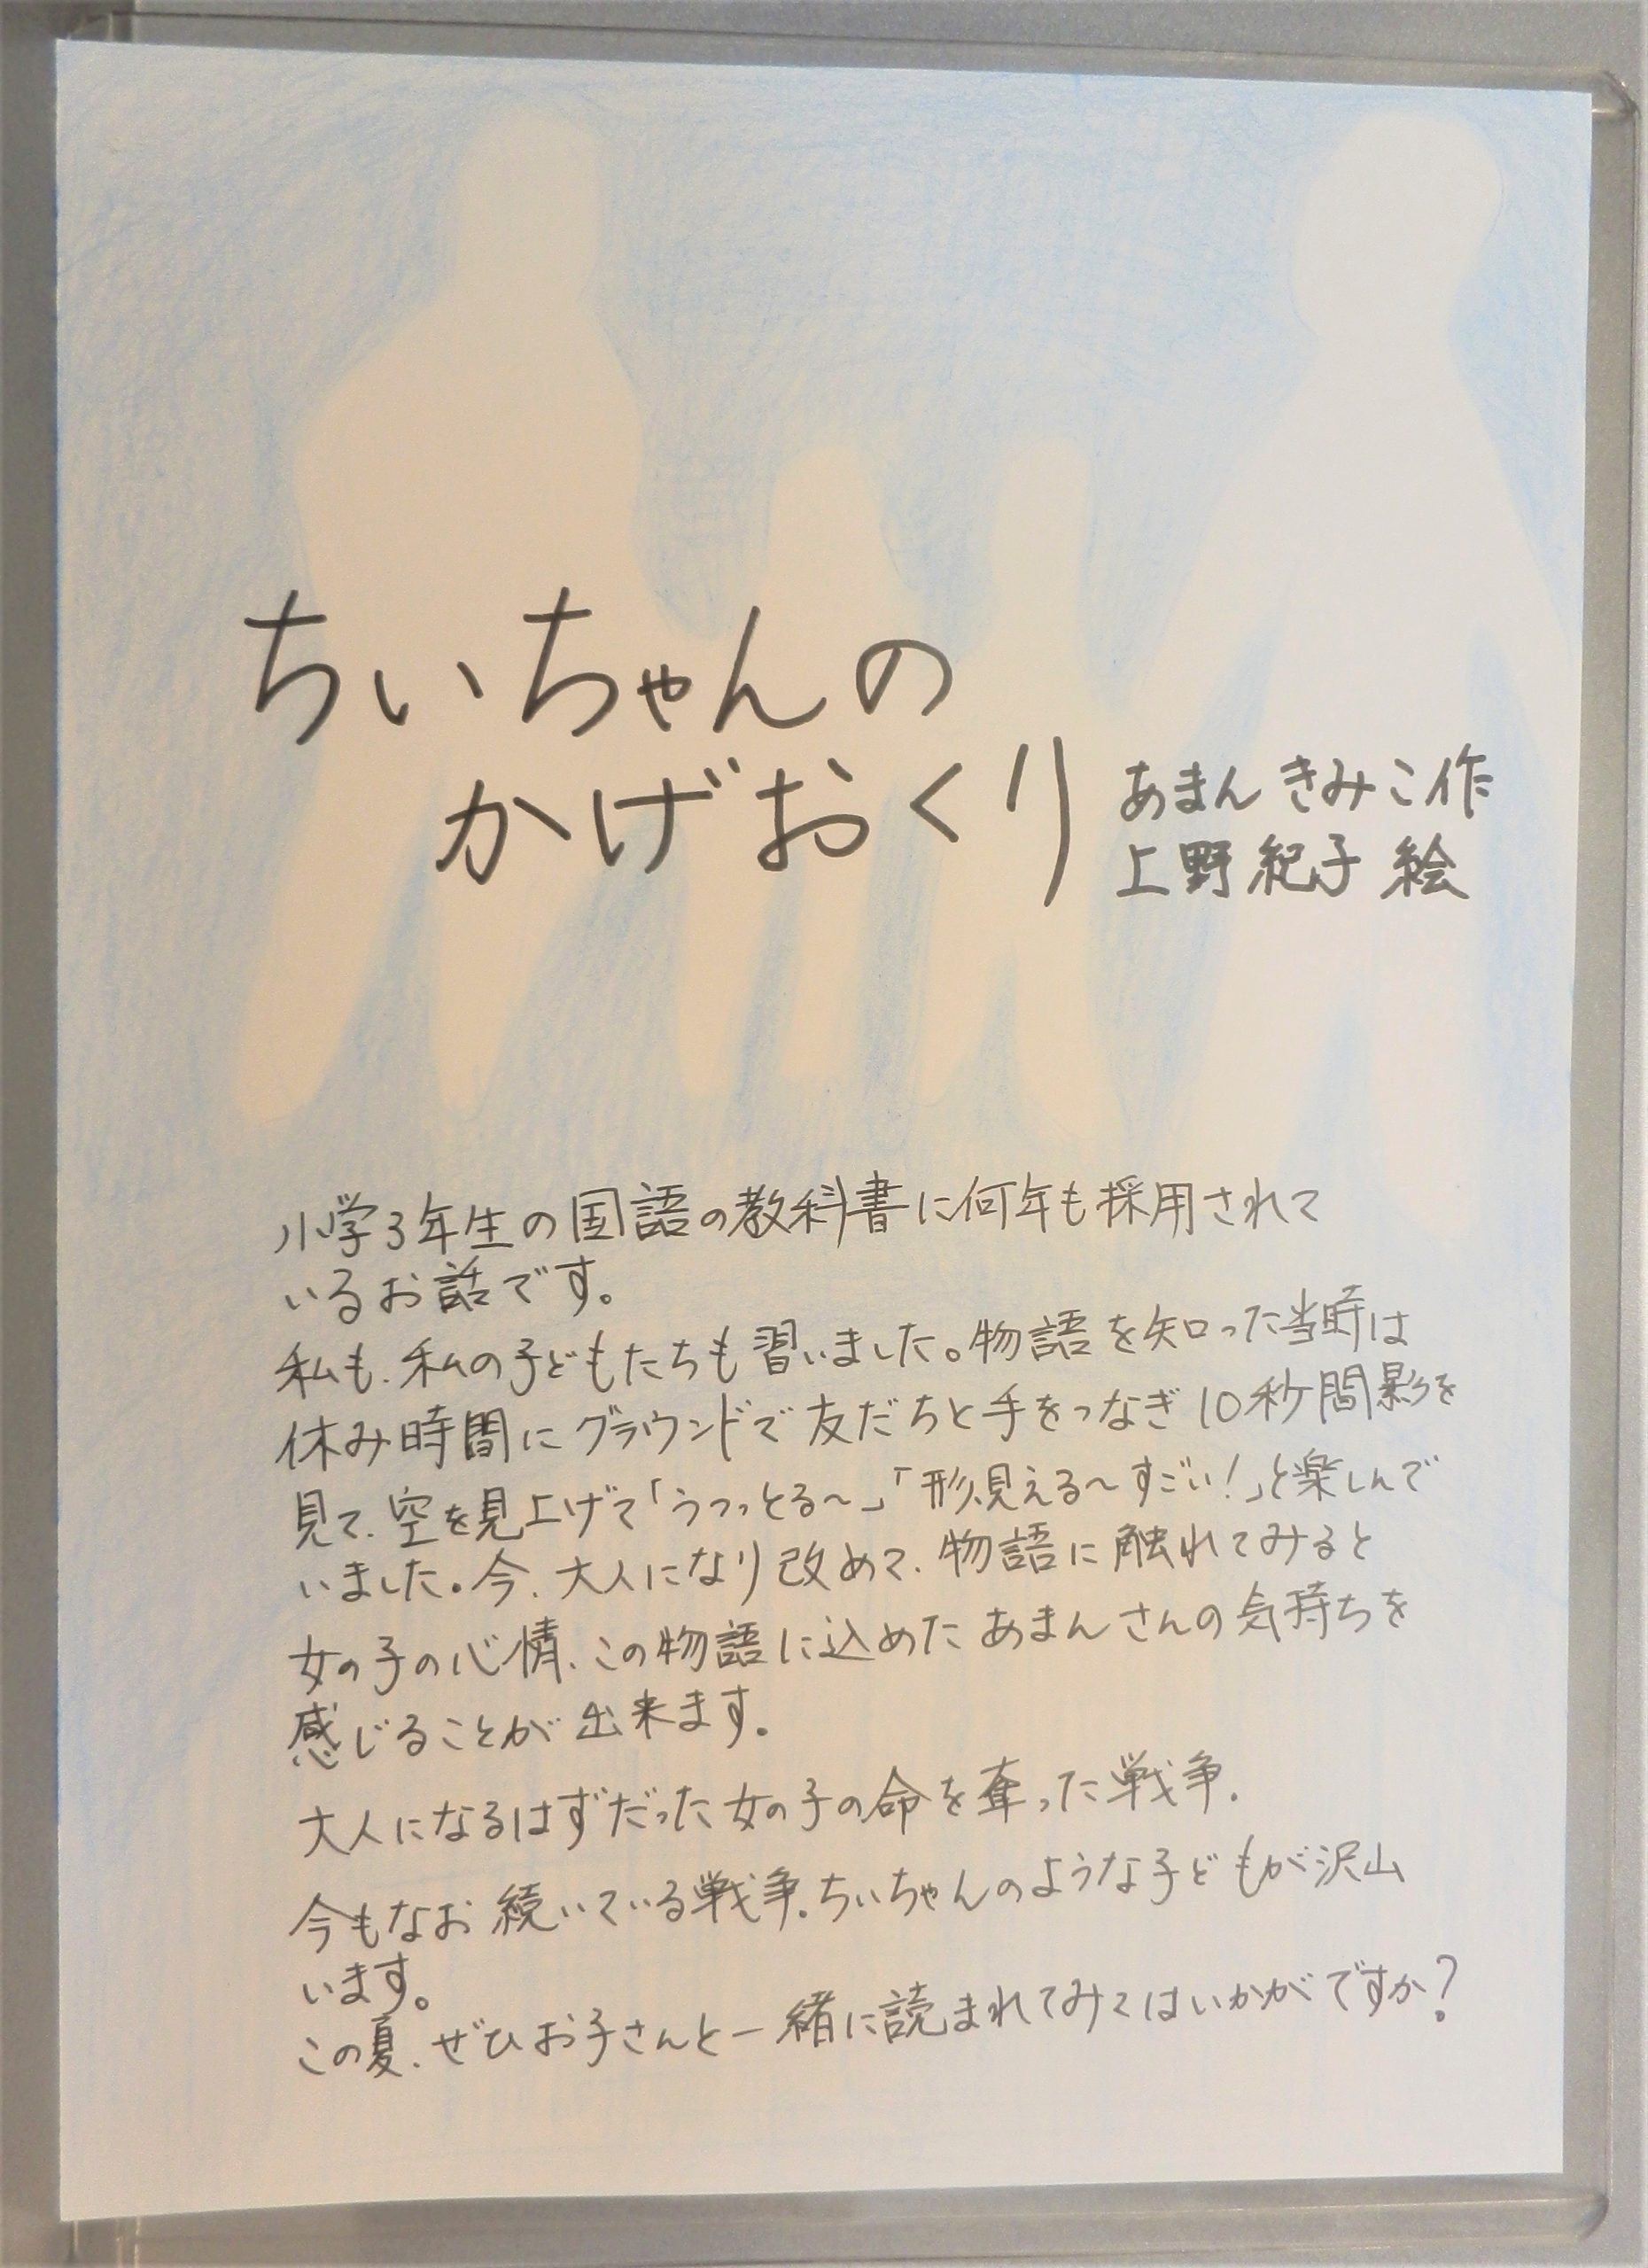 ちいちゃんの
かげおくり
あまんきみこ作
上野紀子 絵
小学3年生の国語の教科書に何年も採用されて
いるお話です。
私も、私の子どもたちも習いました。物語を知った当時は
休み時間にグラウンドで友だちと手をつなぎ10秒間影を
見て、空を見上げて「うつっとる〜」「形見える〜すごい!」と楽しんで
いました。今、大人になり改めて、物語に触れてみると
女の子の心情、この物語に込めたあまんさんの気持ちを
感じることが出来ます。
大人になるはずだった女の子の命を奪った戦争、
今もなお続いている戦争、ちいちゃんのような子どもが沢山
います。
この夏、ぜひお子さんと一緒に読まれてみてはいかがですか?